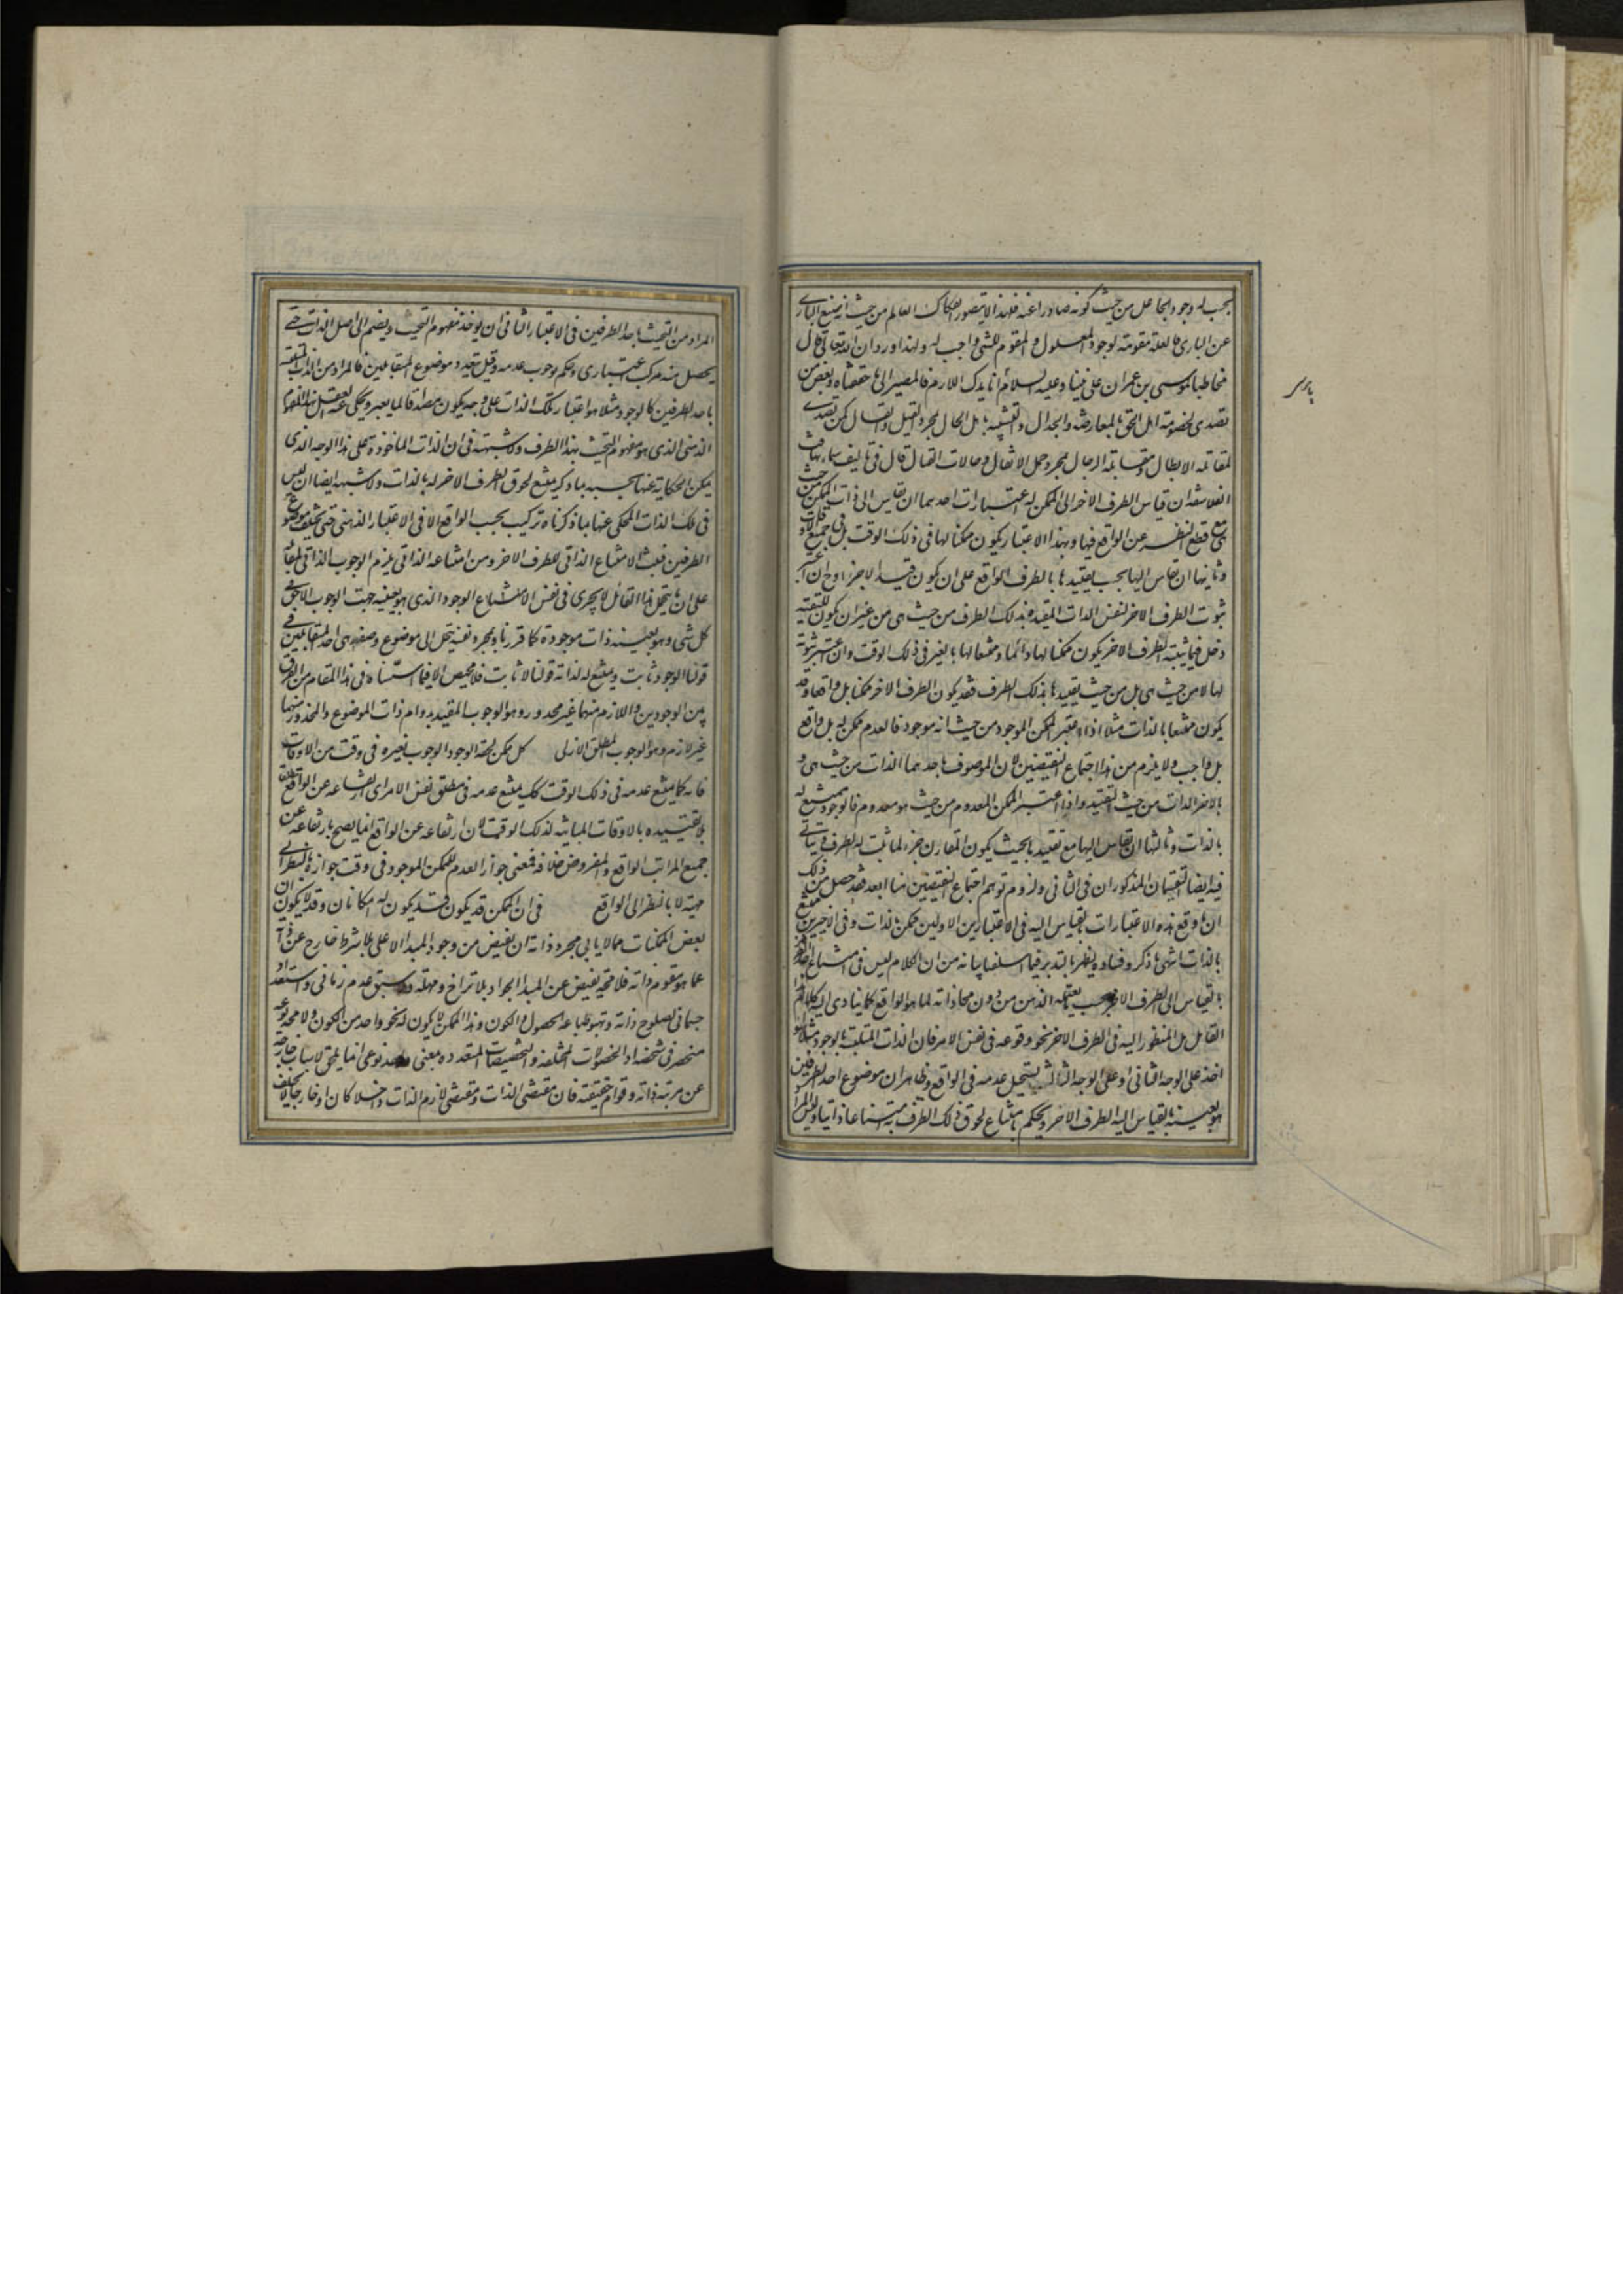 يجب له وجود الجاعل من حيث كونه صادرا عنه فلهذا لا يتصور انفكاك العالم من حيث انه صنع الباري
عن الباري فالعلة مقومة لوجود المعلول والمقوم للشئ واجب له ولهذا ورد ان الله تعالى قال
مخاطبا لموسى بن عمران على نبينا وعليه السلام انا بدك اللازم فالمصير الى ما حققناه وبعض من
تصدى لخصومة اهل الحق بالمعارضة والجدال والتشبه باهل الحال بمجرد القيل والقال كمن تصدى
لمقاتلة الابطال ومقابلة الرجال بمجرد حمل الاثقال والات القتال قال في تاليف سماه تهافت
الفلاسفة ان قياس الطرف الاخر الى الممكن له اعتبارات احدهما ان يقاس الى ذات الممكن من حيث
هي مع قطع النظر عن الواقع فيها وبهذا الاعتبار يكون ممكنا لها في ذلك الوقت بل في جميع الاوقات
وثانيها ان يقاس اليها بحسب تقييدها بالطرف الواقع على ان يكون قيدا لا جزء وح ان اعتبر
ثبوت الطرف الاخر لنفس الذات المقيدة بذلك الطرف من حيث هي من غير ان يكون للتقييد
دخل فيما يثبت له الطرف الاخر يكون ممكنا لها دائما وممتنعا لها بالغير في ذلك الوقت وان اعتبر ثبوته
لها لا من حيث هي بل من حيث تقييدها بذلك الطرف فقد يكون الطرف الاخر ممكنا بل واقعا وقد
يكون ممتنعا بالذات مثلا اذا اعتبر الممكن الموجود من حيث انه موجود فالعدم ممكن له بل واقع
بل واجب ولا يلزم من هذا اجتماع النقيضين لان الموصوف باحدهما الذات من حيث هي و
بالاخر الذات من حيث التقييد واذا اعتبر الممكن المعدوم من حيث هو معدوم فالوجود يمتنع له
بالذات وثالثها ان يقاس اليها مع تقييدها بحيث يكون المقارن جزء لما ثبت له الطرف وياتي
فيه ايضا القسمان المذكوران في الثاني ولزوم توهم اجتماع النقيضين هنا ابعد فقد حصل من ذلك
ان ما وقع بهذه الاعتبارات بالقياس اليه في الاعتبارين الاولين ممكن بالذات وفي الاخيرين ممتنع
بالذات انتهى ما ذكره وفساده يظهر بالتدبر فيما اسلفنا بيانه من ان الكلام ليس في امتناع احد
بالقياس الى الطرف الاخر بحسب تعقله الذهن من دون محاذاته لما هو الواقع كما ينادي اليه كلام هذا
القائل بل المنظور اليه في الطرف الاخر نحو وقوعه في نفس الامر فان الذات المتلبسة بالوجود مثلا لو
اخذ على الوجه الثاني او على الوجه الثالث يستحيل عدمه في الواقع وظاهر ان موضوع احد الطرفين
هو بعينه بالقياس اليه الطرف الاخر ويحكم بامتناع لحوق ذلك الطرف به امتناعا ذاتيا وليس المراد
المراد من التحيث باحد الطرفين في الاعتبار الثاني ان يوخذ مفهوم التحيث ويضم الى اصل الذات حتى
يحصل منه مركب اعتباري وحكم بوجوب عدمه وقيل بتعدد موضوع المتقابلين فالمراد من الذات المتلبسة
باحد الطرفين كالوجود مثلا هو اعتبار تلك الذات على وجه يكون مصداقا لما يعبر ويحكى عنه العقل بهذا المفهوم
الذهني الذي هو مفهوم التحيث بهذا الطرف ولا شبهة في ان الذات الماخوذة على هذا الوجه الذي
يمكن الحكاية عنها بحسبه بما ذكر يمتنع لحوق الطرف الاخر له بالذات ولا شبهة ايضا ان ليس
في تلك الذات المحكي عنها بما ذكرناه تركيب بحسب الواقع الا في الاعتبار الذهني حتى يختلف موضوع
الطرفين فيثبت الامتناع الذاتي للطرف الاخر ومن امتناعه الذاتي يلزم الوجوب الذاتي لمقابله
على ان ما يتحمل هذا القائل لا يجري في نفس الامتناع الوجود الذي هو بعينه حيث الوجوب اللاحق في
كل شئ وهو بعينه ذات موجودة كما قررنا وبمجرده نفسه ينحل الى موضوع وصفة هي احد المتقابلين في
قولنا الوجود ثابت ويمتنع له لذاته قولنا لا ثابت فلا محيص الا فيما اسسناه في هذا المقام من الفرق
بين الوجوبين واللازم منهما غير محذور وهو الوجوب المقيد بدوام ذات الموضوع والمحذور منهما
غير لازم وهو الوجوب المطلق الازلي كل ممكن لحقه الوجود الوجوب بغيره في وقت من الاوقات
فانه كما يمتنع عدمه في ذلك الوقت كك يمتنع عدمه في مطلق نفس الامر اي ارتفاعه عن الواقع مطلقا
بلا تقييده بالاوقات المباينة لذلك الوقت لان ارتفاعه عن الواقع انما يصح بارتفاعه عن
جميع المراتب الواقع والمفروض خلافه فمعنى جواز العدم للممكن الموجود في وقت جوازه بالنظر الى
مهيته لا بالنظر الى الواقع في ان الممكن قد يكون له امكانان وقد لا يكون
بعض الممكنات مما لا يابى مجرد ذاته ان يفيض من وجود المبدا الاعلى بلا شرط خارج عن ذاته
عما هو مقوم ذاته فلا محة يفيض عن المبدا الجواد بلا تراخ ومهلة ولا سبق عدم زماني واستعداد
جسماني لصلوح ذاته وتهيؤ طباعه للحصول والكون وهذا الممكن لا يكون له نحو واحد من الكون ولا محة نوعه
منحصر في شخصه اذ الحصولات المختلفة والتخصيصات المتعددة لمعنى واحد نوعي انما يلحق لاسباب خارجة
عن مرتبة ذاته وقوام حقيقته فان مقتضى الذات ومقتضى لازم الذات داخلا كان او خارجا لا يختلف